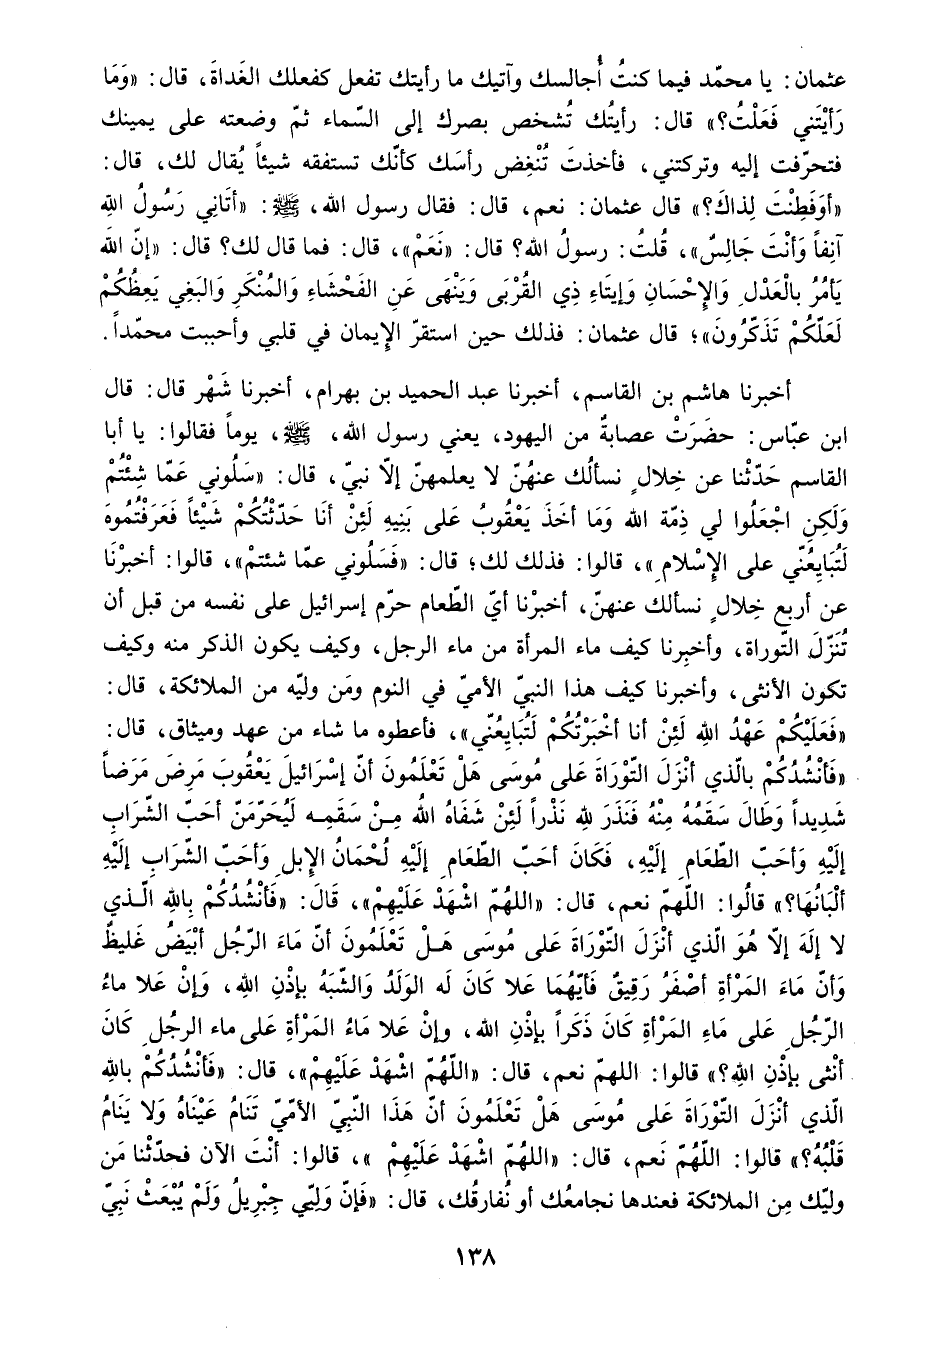 عثمان: يا محمّد فيما كنتُ أُجالسك وآتيك ما رأيتك تفعل كفعلك الغَداةَ، قال: «وَمَا
رَأيْتَني فَعَلْتُ؟» قال: رأيتُك تُشخص بصرك إلى السّماء ثمّ وضعته على يمينك
فتحرّفت إليه وتركتني، فأخذتَ تُنْغِض رأسَك كأنّك تستفقه شيئاً يُقال لك، قال:
«أوَفَطِنْتَ لِذاكَ؟» قال عثمان: نعم، قال: فقال رسول الله، ﷺ: «أتَاني رَسُولُ اللهِ
آنِفاً وَأنْتَ جَالِسٌ»، قُلتُ: رسولُ الله؟ قال: «نَعَمْ»، قال: فما قال لك؟ قال: «إنّ اللهَ
يَأمُرُ بالْعَدْلِ وَالإحْسَانِ وَإيتَاءِ ذِي القُرْبَى وَيَنْهَى عَنِ الفَحْشَاءِ وَالمُنْكَرِ وَالبَغْي يَعِظُكُمْ
لَعَلّكُمْ تَذَكّرُونَ»؛ قال عثمان: فذلك حين استقرّ الإيمان في قلبي وأحببت محمّداً.
أخبرنا هاشم بن القاسم، أخبرنا عبد الحميد بن بهرام، أخبرنا شَهْر قال: قال
ابن عبّاس: حضَرَتْ عصابةٌ من اليهود، يعني رسول الله، ﷺ، يوماً فقالوا: يا أبا
القاسم حَدّثْنا عن خِلالٍ نسألُك عنهُنّ لا يعلمهنّ إلاّ نبيّ، قال: «سَلُوني عَمّا شِئْتُمْ
وَلَكِنِ اجْعَلُوا لي ذِمّة الله وَمَا أخَذَ يَعْقُوبُ عَلى بَنِيهِ لَئِنْ أنَا حَدّثْتُكُمْ شَيْئاً فَعَرَفْتُموهُ
لَتُبَايِعُنّي على الإسْلامِ»، قالوا: فذلك لك؛ قال: «فَسَلُوني عمّا شئتم»، قالوا: أخبرْنَا
عن أربع خِلالٍ نسألك عنهنّ، أخبرْنا أيّ الطّعام حرّم إسرائيل على نفسه من قبل أن
تُنَزّلَ التّوراة، وأخبِرنا كيف ماء المرأة من ماء الرجل، وكيف يكون الذكر منه وكيف
تكون الأنثى، وأخبرنا كيف هذا النبيّ الأميّ في النوم ومَن وليّه من الملائكة، قال:
«فَعَلَيْكُمْ عَهْدُ اللهِ لَئِنْ أنا أخْبَرْتُكُمْ لَتُبَايِعُنّي»، فأعطوه ما شاء من عهد وميثاق، قال:
«فَأنْشُدُكُمْ بالّذي أنْزَلَ التّوْرَاةَ عَلى مُوسَى هَلْ تَعْلَمُونَ أنّ إسْرَائيلَ يَعْقوبَ مَرِضَ مَرَضاً
شَدِيداً وَطَالَ سَقَمُهُ مِنْهُ فَنَذَرَ للهِ نَذْراً لَئِنْ شَفَاهُ اللهُ مِنْ سَقَمِه لَيُحَرّمَنّ أحَبّ الشّرَابِ
إلَيْهِ وَأحَبّ الطّعَامِ إلَيْهِ، فَكَانَ أحَبّ الطّعَامِ إلَيْهِ لُحْمَانُ الإبِلِ وَأحَبّ الشّرَابِ إلَيْهِ
ألْبَانُهَا؟» قالُوا: اللّهمّ نعم، قال: «اللهُمّ اشْهَدْ عَلَيْهِمْ»، قَالَ: «فَأنْشُدُكُمْ بِاللهِ الّذي
لا إلَهَ إلاّ هُوَ الّذي أنْزَلَ التّوْرَاةَ عَلى مُوسَى هَلْ تَعْلَمُونَ أنّ مَاءَ الرّجُلِ أبْيَضُ غَليظٌ
وَأنّ مَاءَ المَرْأةِ أصْفَرُ رَقِيقٌ فَأيّهُمَا عَلا كَانَ له الوَلَدُ وَالشّبَهُ بإذْنِ اللهِ، وَإنْ عَلا ماءُ
الرّجُلِ عَلى مَاءِ المَرْأةِ كَانَ ذَكَراً بإذْنِ الله، وإنْ عَلا مَاءُ المَرْأةِ عَلى ماء الرجُلِ كَانَ
أنْثى بإذْنِ اللهِ؟» قالوا: اللهمّ نعم، قال: «اللّهُمّ اشْهَدْ عَلَيْهِمْ»، قال: «فَأنْشُدُكُمْ باللهِ
الّذي أنْزَلَ التّوْرَاةَ عَلى مُوسَى هَلْ تَعْلَمُونَ أنّ هَذَا النّبيّ الأمّيّ تَنَامُ عَيْنَاهُ وَلا يَنَامُ
قَلْبُهُ؟» قالوا: اللّهُمّ نَعم، قال: «اللهُمّ اشْهَدْ عَلَيْهِمْ»، قالوا: أنْتَ الآن فحدّثْنا مَن
وليّك مِن الملائكة فعندها نجامعُك أو نُفارقُك، قال: «فَإنّ وَلِيّي جِبْرِيلُ وَلَمْ يُبْعَثْ نَبِيّ
١٣٨